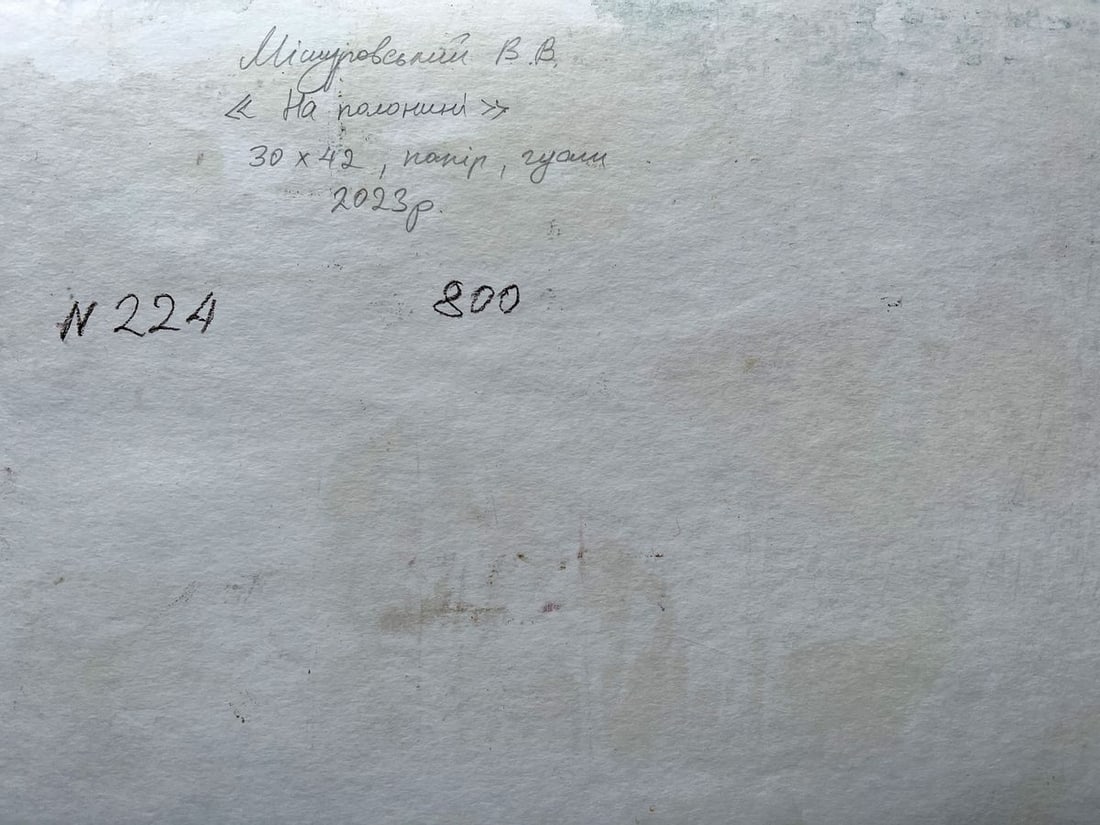 Мішуровський В.В.
« На полонині »
30 х 42, папір, гуаш
2023р.
N 224 800